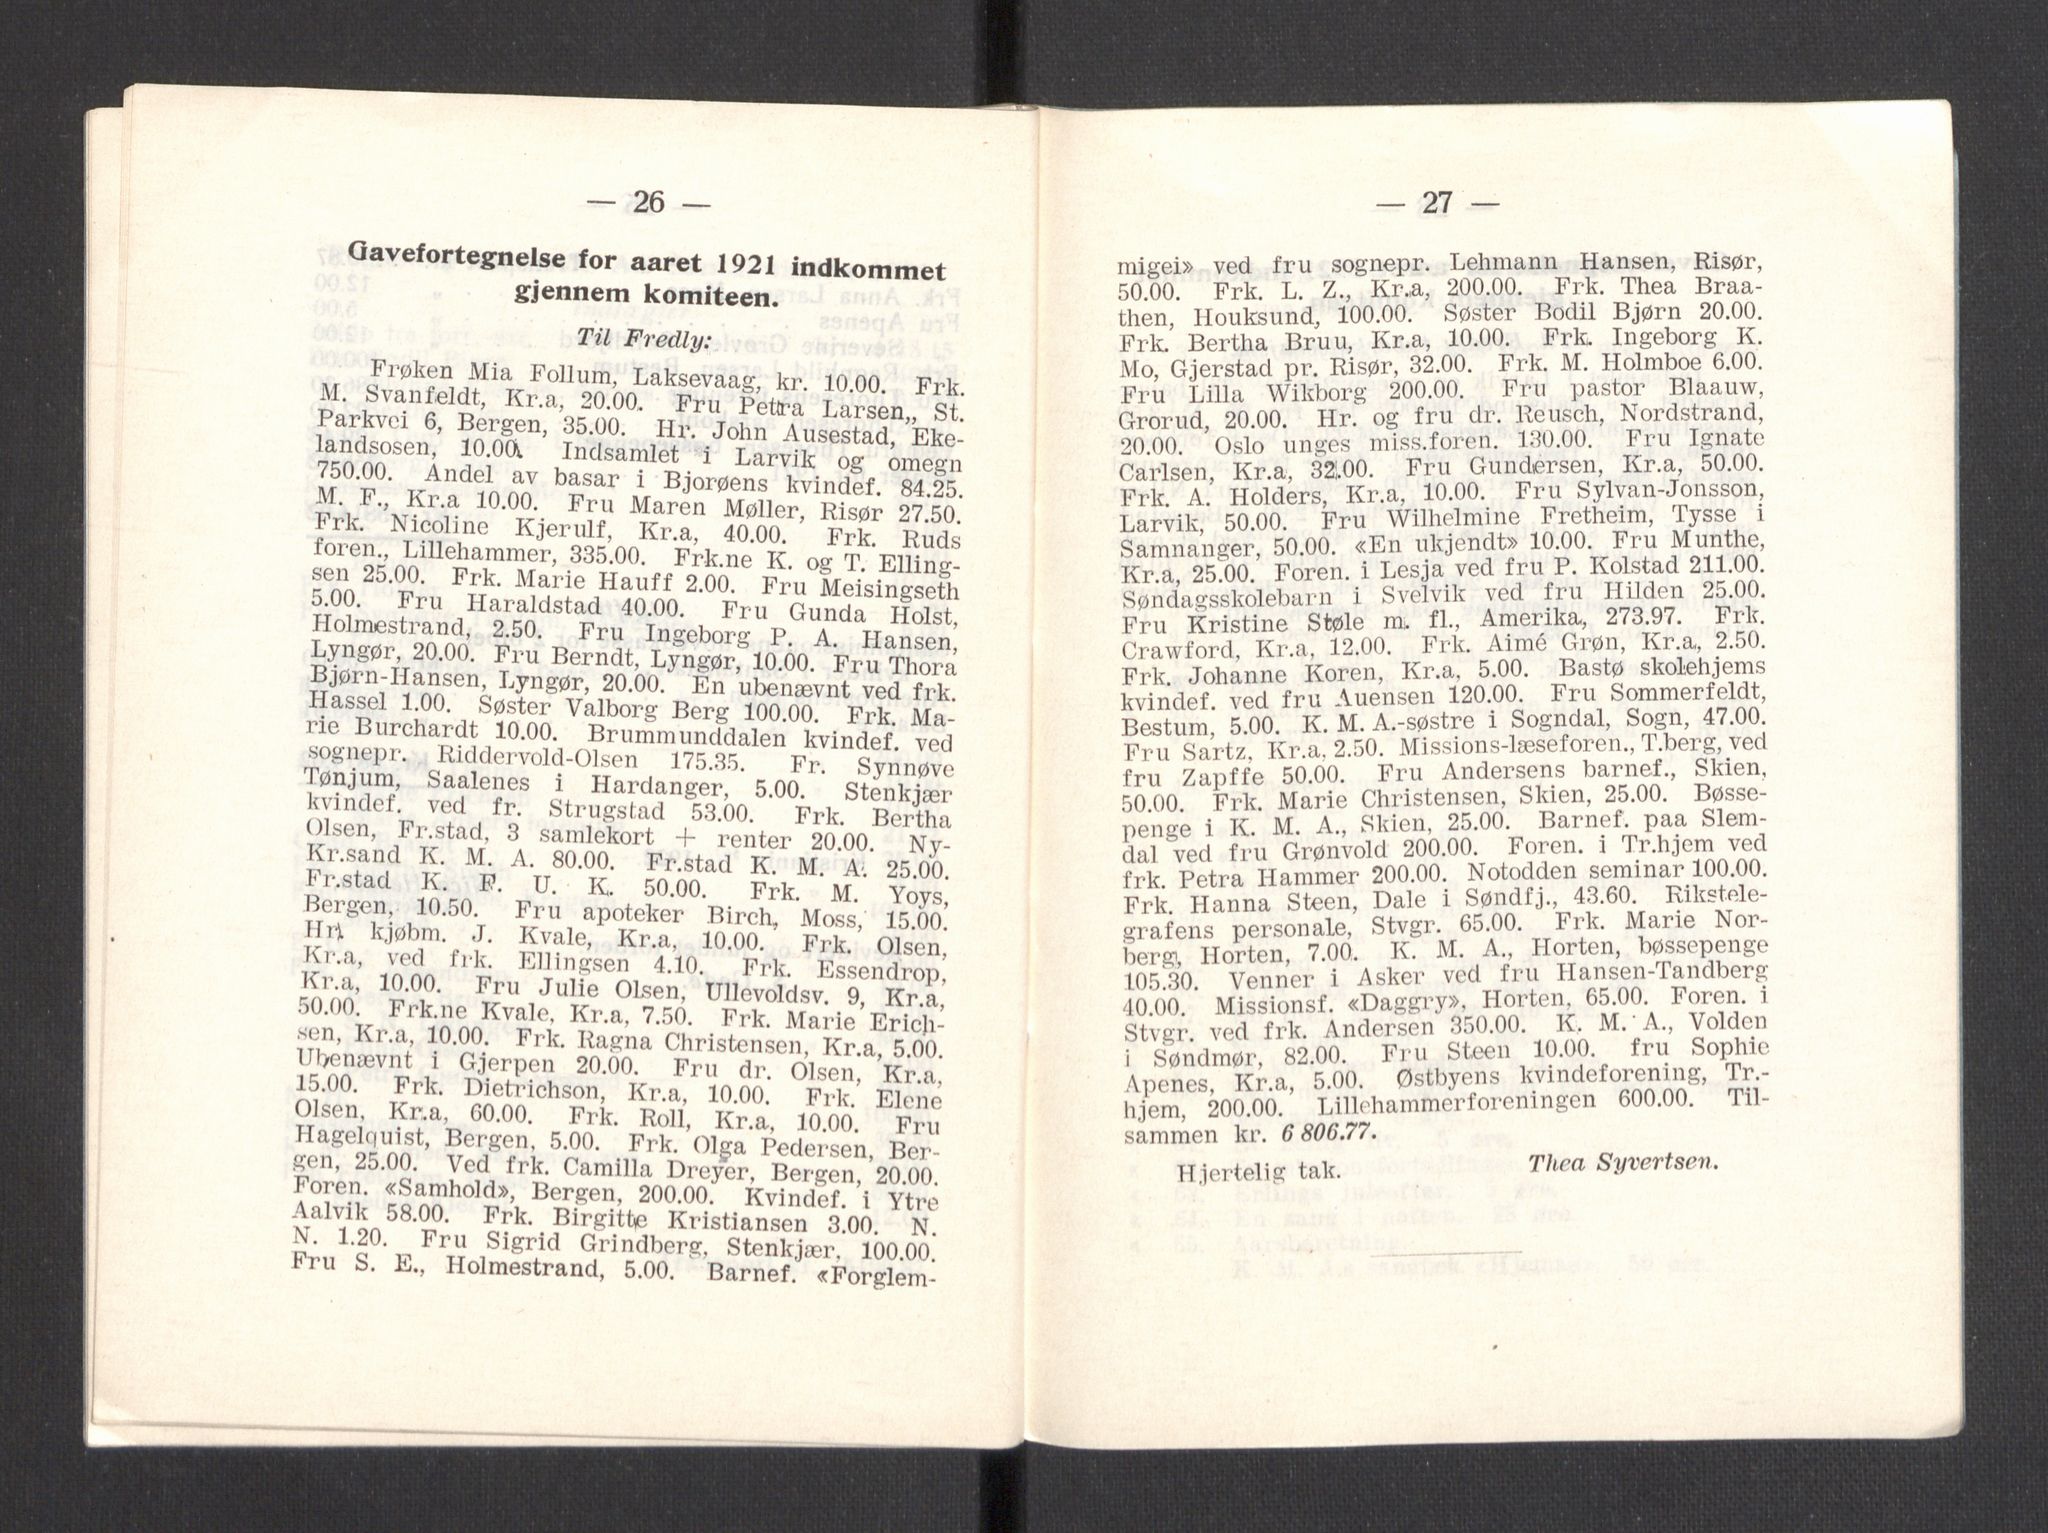 — 26 —
Gavefortegnelse for aaret 1921 indkommet
gjennem komiteen.
Til Fredly:
Frøken Mia Follum, Laksevaag, kr. 10.00. Frk.
M. Svanfeldt, Kr.a, 20.00. Fru Petra Larsen,, St.
Parkvei 6, Bergen, 35.00. Hr. John Ausestad, Eke-
landsosen, 10.00. Indsamlet i Larvik og omegn
750.00. Andel av basar i Bjorøens kvindef. 84.25.
M. F., Kr.a 10.00. Fru Maren Møller, Risør 27.50.
Frk. Nicoline Kjerulf, Kr.a, 40.00. Frk. Ruds
foren., Lillehammer, 335.00. Frk.ne K. og T. Elling-
sen 25.00. Frk. Marie Hauff 2.00. Fru Meisingseth
5.00. Fru Haraldstad 40.00. Fru Gunda Holst,
Holmestrand, 2.50. Fru Ingeborg P. A. Hansen,
Lyngør, 20.00. Fru Berndt, Lyngør, 10.00. Fru Thora
Bjørn-Hansen, Lyngør, 20.00. En ubenævnt ved frk.
Hassel 1.00. Søster Valborg Berg 100.00. Frk. Ma-
rie Burchardt 10.00. Brummunddalen kvindef. ved
sognepr. Riddervold-Olsen 175.35. Fr. Synnøve
Tønjum, Saalenes i Hardanger, 5.00. Stenkjær
kvindef. ved fr. Strugstad 53.00. Frk. Bertha
Olsen, Fr.stad, 3 samlekort + renter 20.00. Ny-
Kr.sand K. M. A. 80.00. Fr.stad K. M. A. 25.00.
Fr.stad K. F. U. K. 50.00. Frk. M. Yoys,
Bergen, 10.50. Fru apoteker Birch, Moss, 15.00.
Hr. kjøbm. J. Kvale, Kr.a, 10.00. Frk. Olsen,
Kr.a, ved frk. Ellingsen 4.10. Frk. Essendrop,
Kr.a, 10.00. Fru Julie Olsen, Ullevoldsv. 9, Kr.a,
50.00. Frk.ne Kvale, Kr.a, 7.50. Frk. Marie Erich-
sen, Kr.a, 10.00. Frk. Ragna Christensen, Kr.a, 5.00.
Ubenævnt i Gjerpen 20.00. Fru dr. Olsen, Kr.a,
15.00. Frk. Dietrichson, Kr.a, 10.00. Frk. Elene
Olsen, Kr.a, 60.00. Frk. Roll, Kr.a, 10.00. Fru
Hagelquist, Bergen, 5.00. Frk. Olga Pedersen, Ber-
gen, 25.00. Ved frk. Camilla Dreyer, Bergen, 20.00.
Foren. «Samhold», Bergen, 200.00. Kvindef. i Ytre
Aalvik 58.00. Frk. Birgitte Kristiansen 3.00. N.
N. 1.20. Fru Sigrid Grindberg, Stenkjær, 100.00.
Fru S. E., Holmestrand, 5.00. Barnef. «Forglem-
— 27 —
migei» ved fru sognepr. Lehmann Hansen, Risør,
50.00. Frk. L. Z., Kr.a, 200.00. Frk. Thea Braa-
then, Houksund, 100.00. Søster Bodil Bjørn 20.00.
Frk. Bertha Bruu, Kr.a, 10.00. Frk. Ingeborg K.
Mo, Gjerstad pr. Risør, 32.00. Frk. M. Holmboe 6.00.
Fru Lilla Wikborg 200.00. Fru pastor Blaauw,
Grorud, 20.00. Hr. og fru dr. Reusch, Nordstrand,
20.00. Oslo unges miss.foren. 130.00. Fru Ignate
Carlsen, Kr.a, 32.00. Fru Gundersen, Kr.a, 50.00.
Frk. A. Holders, Kr.a, 10.00. Fru Sylvan-Jonsson,
Larvik, 50.00. Fru Wilhelmine Fretheim, Tysse i
Samnanger, 50.00. «En ukjendt» 10.00. Fru Munthe,
Kr.a, 25.00. Foren. i Lesja ved fru P. Kolstad 211.00.
Søndagsskolebarn i Svelvik ved fru Hilden 25.00.
Fru Kristine Støle m. fl., Amerika, 273.97. Frk.
Crawford, Kr.a, 12.00. Frk. Aimé Grøn, Kr.a, 2.50.
Frk. Johanne Koren, Kr.a, 5.00. Bastø skolehjems
kvindef. ved fru Auensen 120.00. Fru Sommerfeldt,
Bestum, 5.00. K. M. A.-søstre i Sogndal, Sogn, 47.00.
Fru Sartz, Kr.a, 2.50. Missions-læseforen., T.berg, ved
fru Zapffe 50.00. Fru Andersens barnef., Skien,
50.00. Frk. Marie Christensen, Skien, 25.00. Bøsse-
penge i K. M. A., Skien, 25.00. Barnef. paa Slem-
dal ved fru Grønvold 200.00. Foren. i Tr.hjem ved
frk. Petra Hammer 200.00. Notodden seminar 100.00.
Frk. Hanna Steen, Dale i Søndfj., 43.60. Rikstele-
grafens personale, Stvgr. 65.00. Frk. Marie Nor-
berg, Horten, 7.00. K. M. A., Horten, bøssepenge
105.30. Venner i Asker ved fru Hansen-Tandberg
40.00. Missionsf. «Daggry», Horten, 65.00. Foren. i
Stvgr. ved frk. Andersen 350.00. K. M. A., Volden
i Søndmør, 82.00. Fru Steen 10.00. fru Sophie
Apenes, Kr.a, 5.00. Østbyens kvindeforening, Tr.-
hjem, 200.00. Lillehammerforeningen 600.00. Til-
sammen kr. 6 806.77.
Hjertelig tak. Thea Syvertsen.